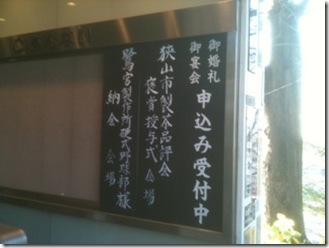 御婚礼
御宴会
申込み受付中
狭山市製茶品評会
褒賞授与式 会場
鷺宮製作所硬式野球部様
納会 会場